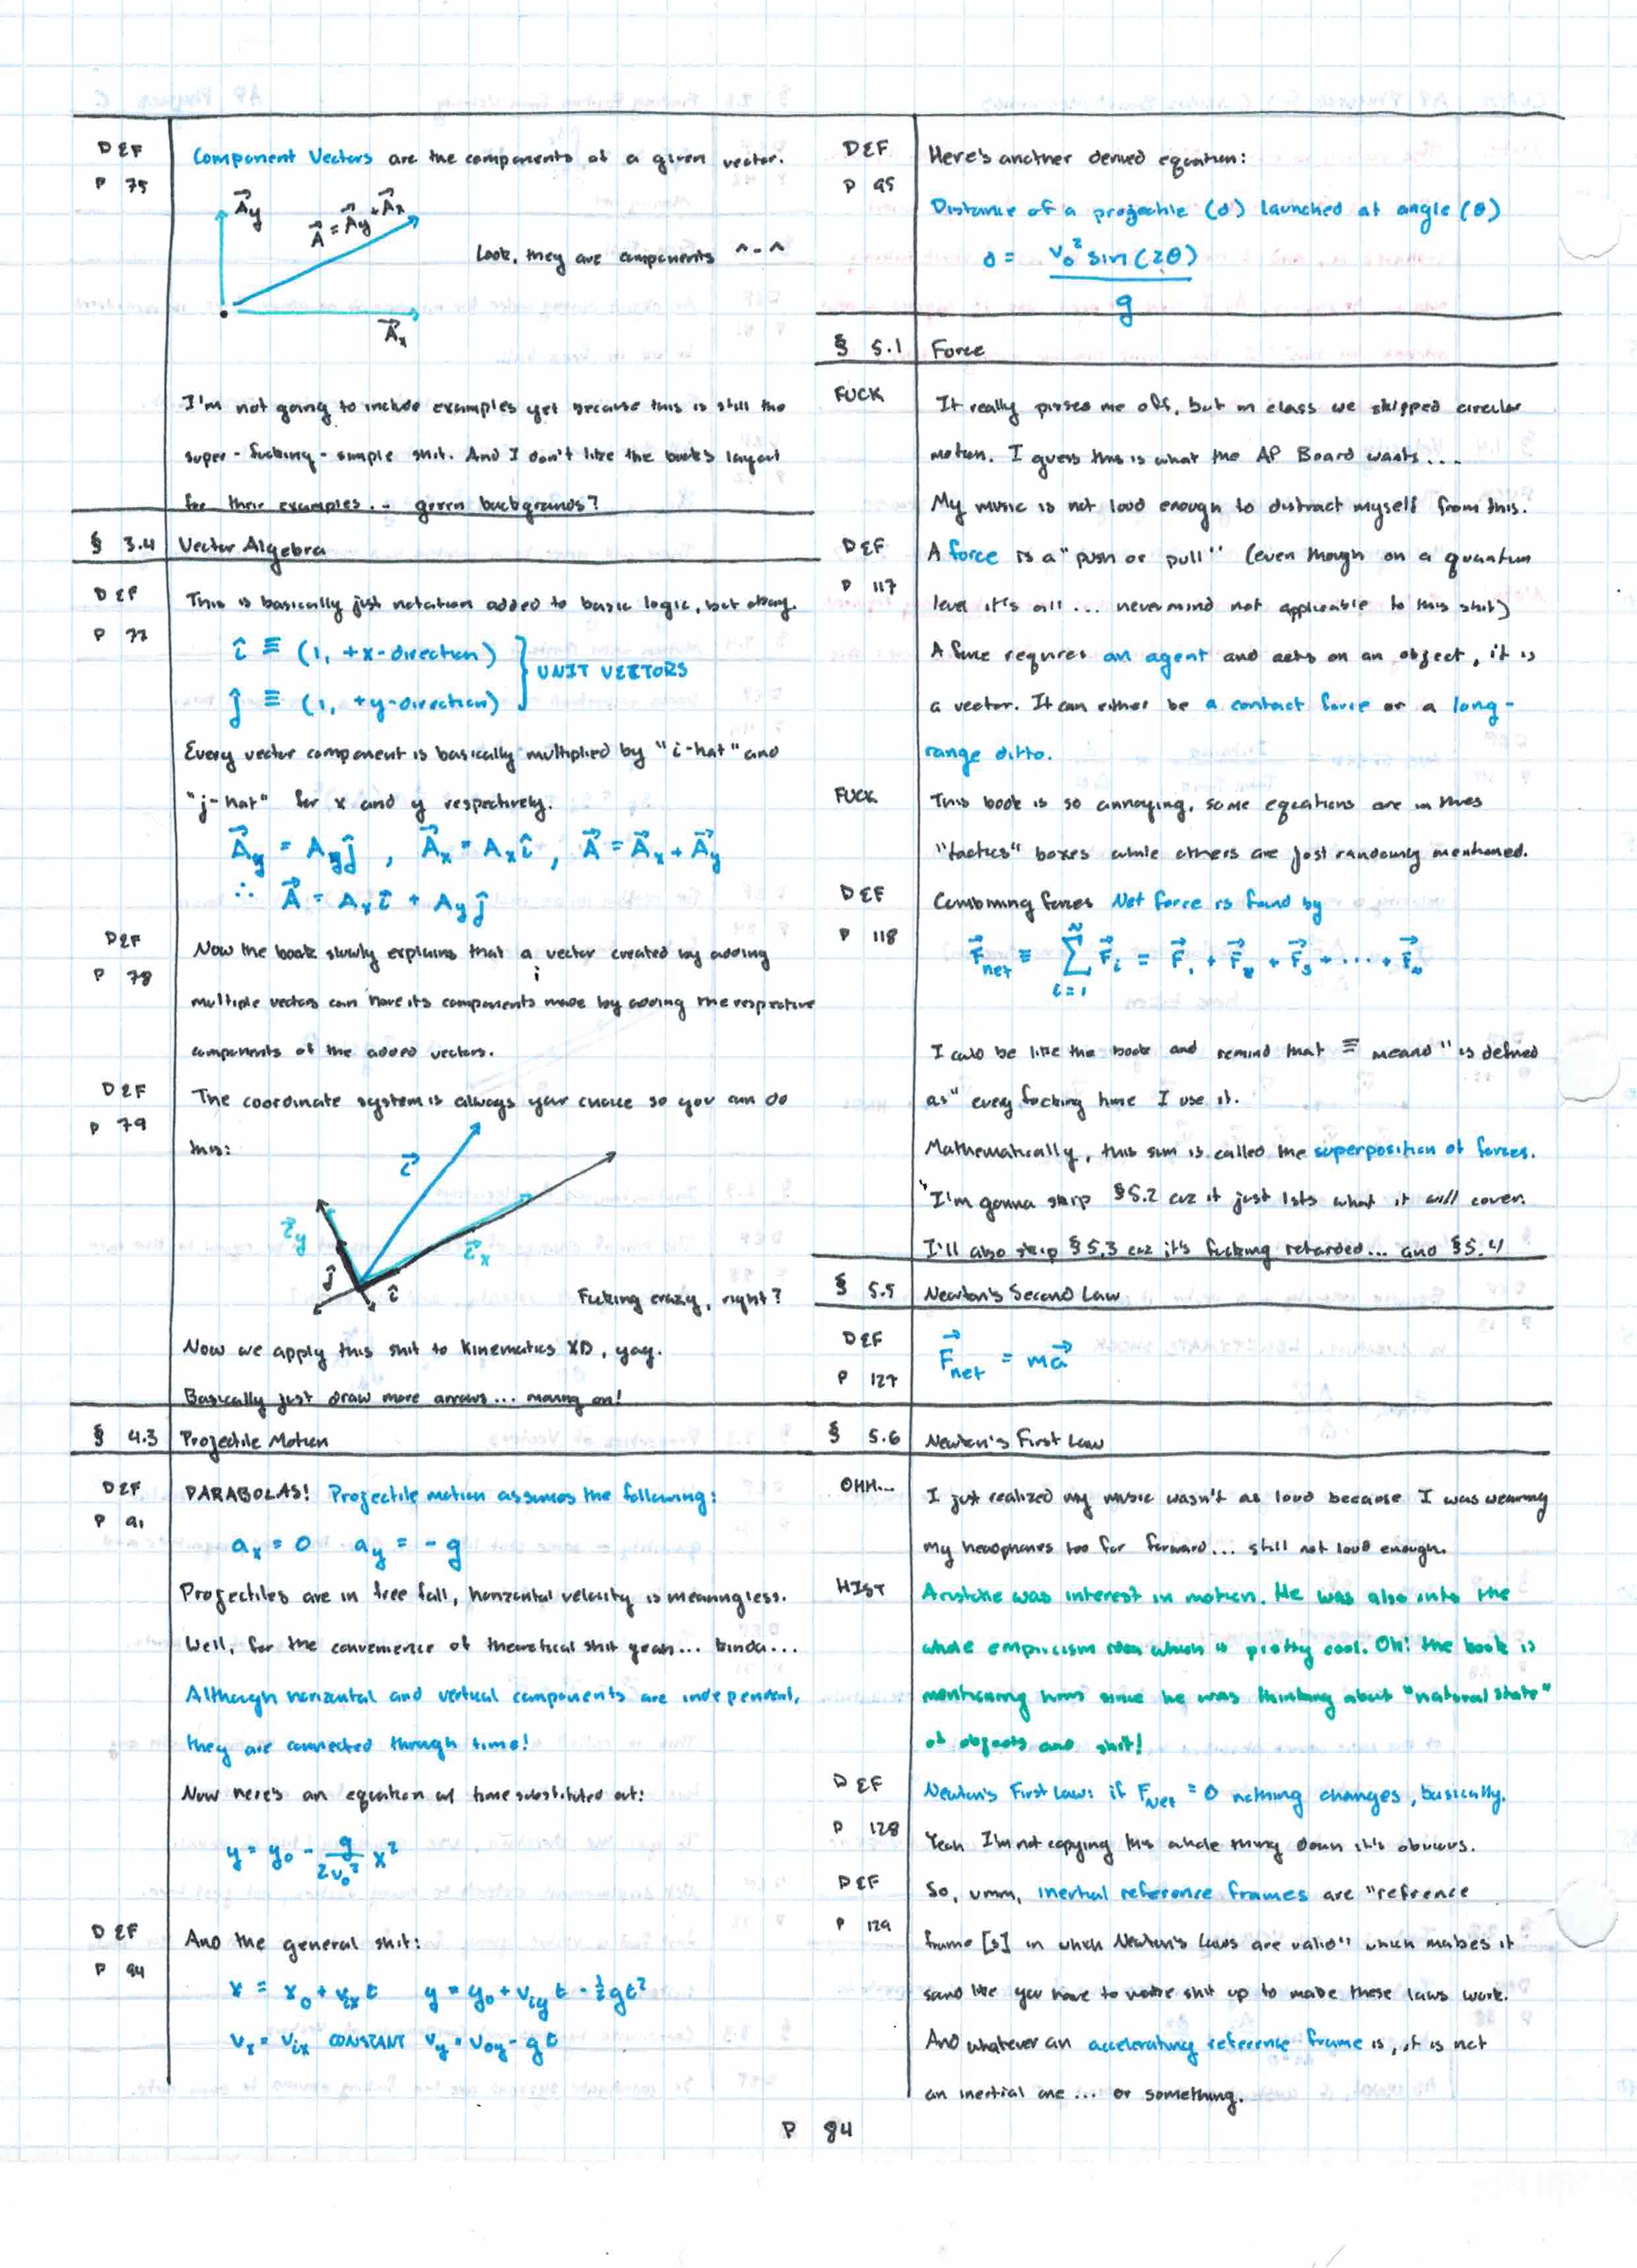 DEF
P 75
Component Vectors are the components of a given vector.
A⃗y
A⃗ = A⃗y + A⃗x
Look, they are components ^-^
A⃗x
I'm not going to include examples yet because this is still the
super-fucking-simple shit. And I don't like the book's layout
for their examples... green backgrounds?
§ 3.4 Vector Algebra
DEF
P 77
This is basically just notation added to basic logic, but okay.
î ≡ (1, +x-direction)
ĵ ≡ (1, +y-direction)
UNIT VECTORS
Every vector component is basically multiplied by "i-hat" and
"j-hat" for x and y respectively.
A⃗y = Ayĵ , A⃗x = Axî , A⃗ = A⃗x + A⃗y
∴ A⃗ = Axî + Ayĵ
DEF
P 78
Now the book slowly explains that a vector created by adding
multiple vectors can have its components made by adding the respective
components of the added vectors.
DEF
P 79
The coordinate system is always your choice so you can do
this:
c⃗
c⃗y
c⃗x
ĵ
î
Fucking crazy, right?
Now we apply this shit to kinematics XD, yay.
Basically just draw more arrows... moving on!
§ 4.3 Projectile Motion
DEF
P 91
PARABOLAS! Projectile motion assumes the following:
ax = 0 ay = -g
Projectiles are in free fall, horizontal velocity is meaningless.
Well, for the convenience of theoretical shit yeah... kinda...
Although horizontal and vertical components are independent,
they are connected through time!
Now here's an equation w/ time substituted out:
y = y₀ - g/2v₀² x²
DEF
P 94
And the general shit:
x = x₀ + vixt y = y₀ + viyt - ½gt²
vx = vix CONSTANT vy = v0y - gt
DEF
P 95
Here's another derived equation:
Distance of a projectile (d) launched at angle (θ)
d = v₀² sin(2θ)
g
§ 5.1 Force
FUCK
It really pisses me off, but in class we skipped circular
motion. I guess this is what the AP Board wants....
My music is not loud enough to distract myself from this.
DEF
P 117
A force is a "push or pull" (even though on a quantum
level it's all ... nevermind not applicable to this shit)
A force requires an agent and acts on an object, it is
a vector. It can either be a contact force or a long-
range ditto.
FUCK
This book is so annoying, some equations are in these
"tactics" boxes while others are just randomly mentioned.
DEF
P 118
Combining forces Net force is found by
F⃗net ≡ ∑ i=1 ∞ F⃗i = F⃗1 + F⃗2 + F⃗3 + ... + F⃗∞
I could be like the book and remind that ≡ means "is defined
as" every fucking time I use it.
Mathematically, this sum is called the superposition of forces.
I'm gonna skip §5.2 cuz it just lists what it will cover.
I'll also skip §5.3 cuz it's fucking retarded... and §5.4
§ 5.5 Newton's Second Law
DEF
P 127
F⃗net = ma⃗
§ 5.6 Newton's First Law
OHH...
I just realized my music wasn't as loud because I was wearing
my headphones too far forward... still not loud enough.
HIST
Aristotle was interest in motion. He was also into the
whole empiricism idea which is pretty cool. Oh! the book is
mentioning him since he was thinking about "natural state"
of objects and shit!
DEF
P 128
Newton's First Law: if Fnet = 0 nothing changes, basically.
Yeah I'm not copying this whole thing down it's obvious.
DEF
P 129
So, umm, inertial reference frames are "refrence
frame [s] in which Newton's laws are valid" which makes it
sound like you have to make shit up to make these laws work.
And whatever an accelerating reference frame is, it is not
an inertial one ... or something.
P 84